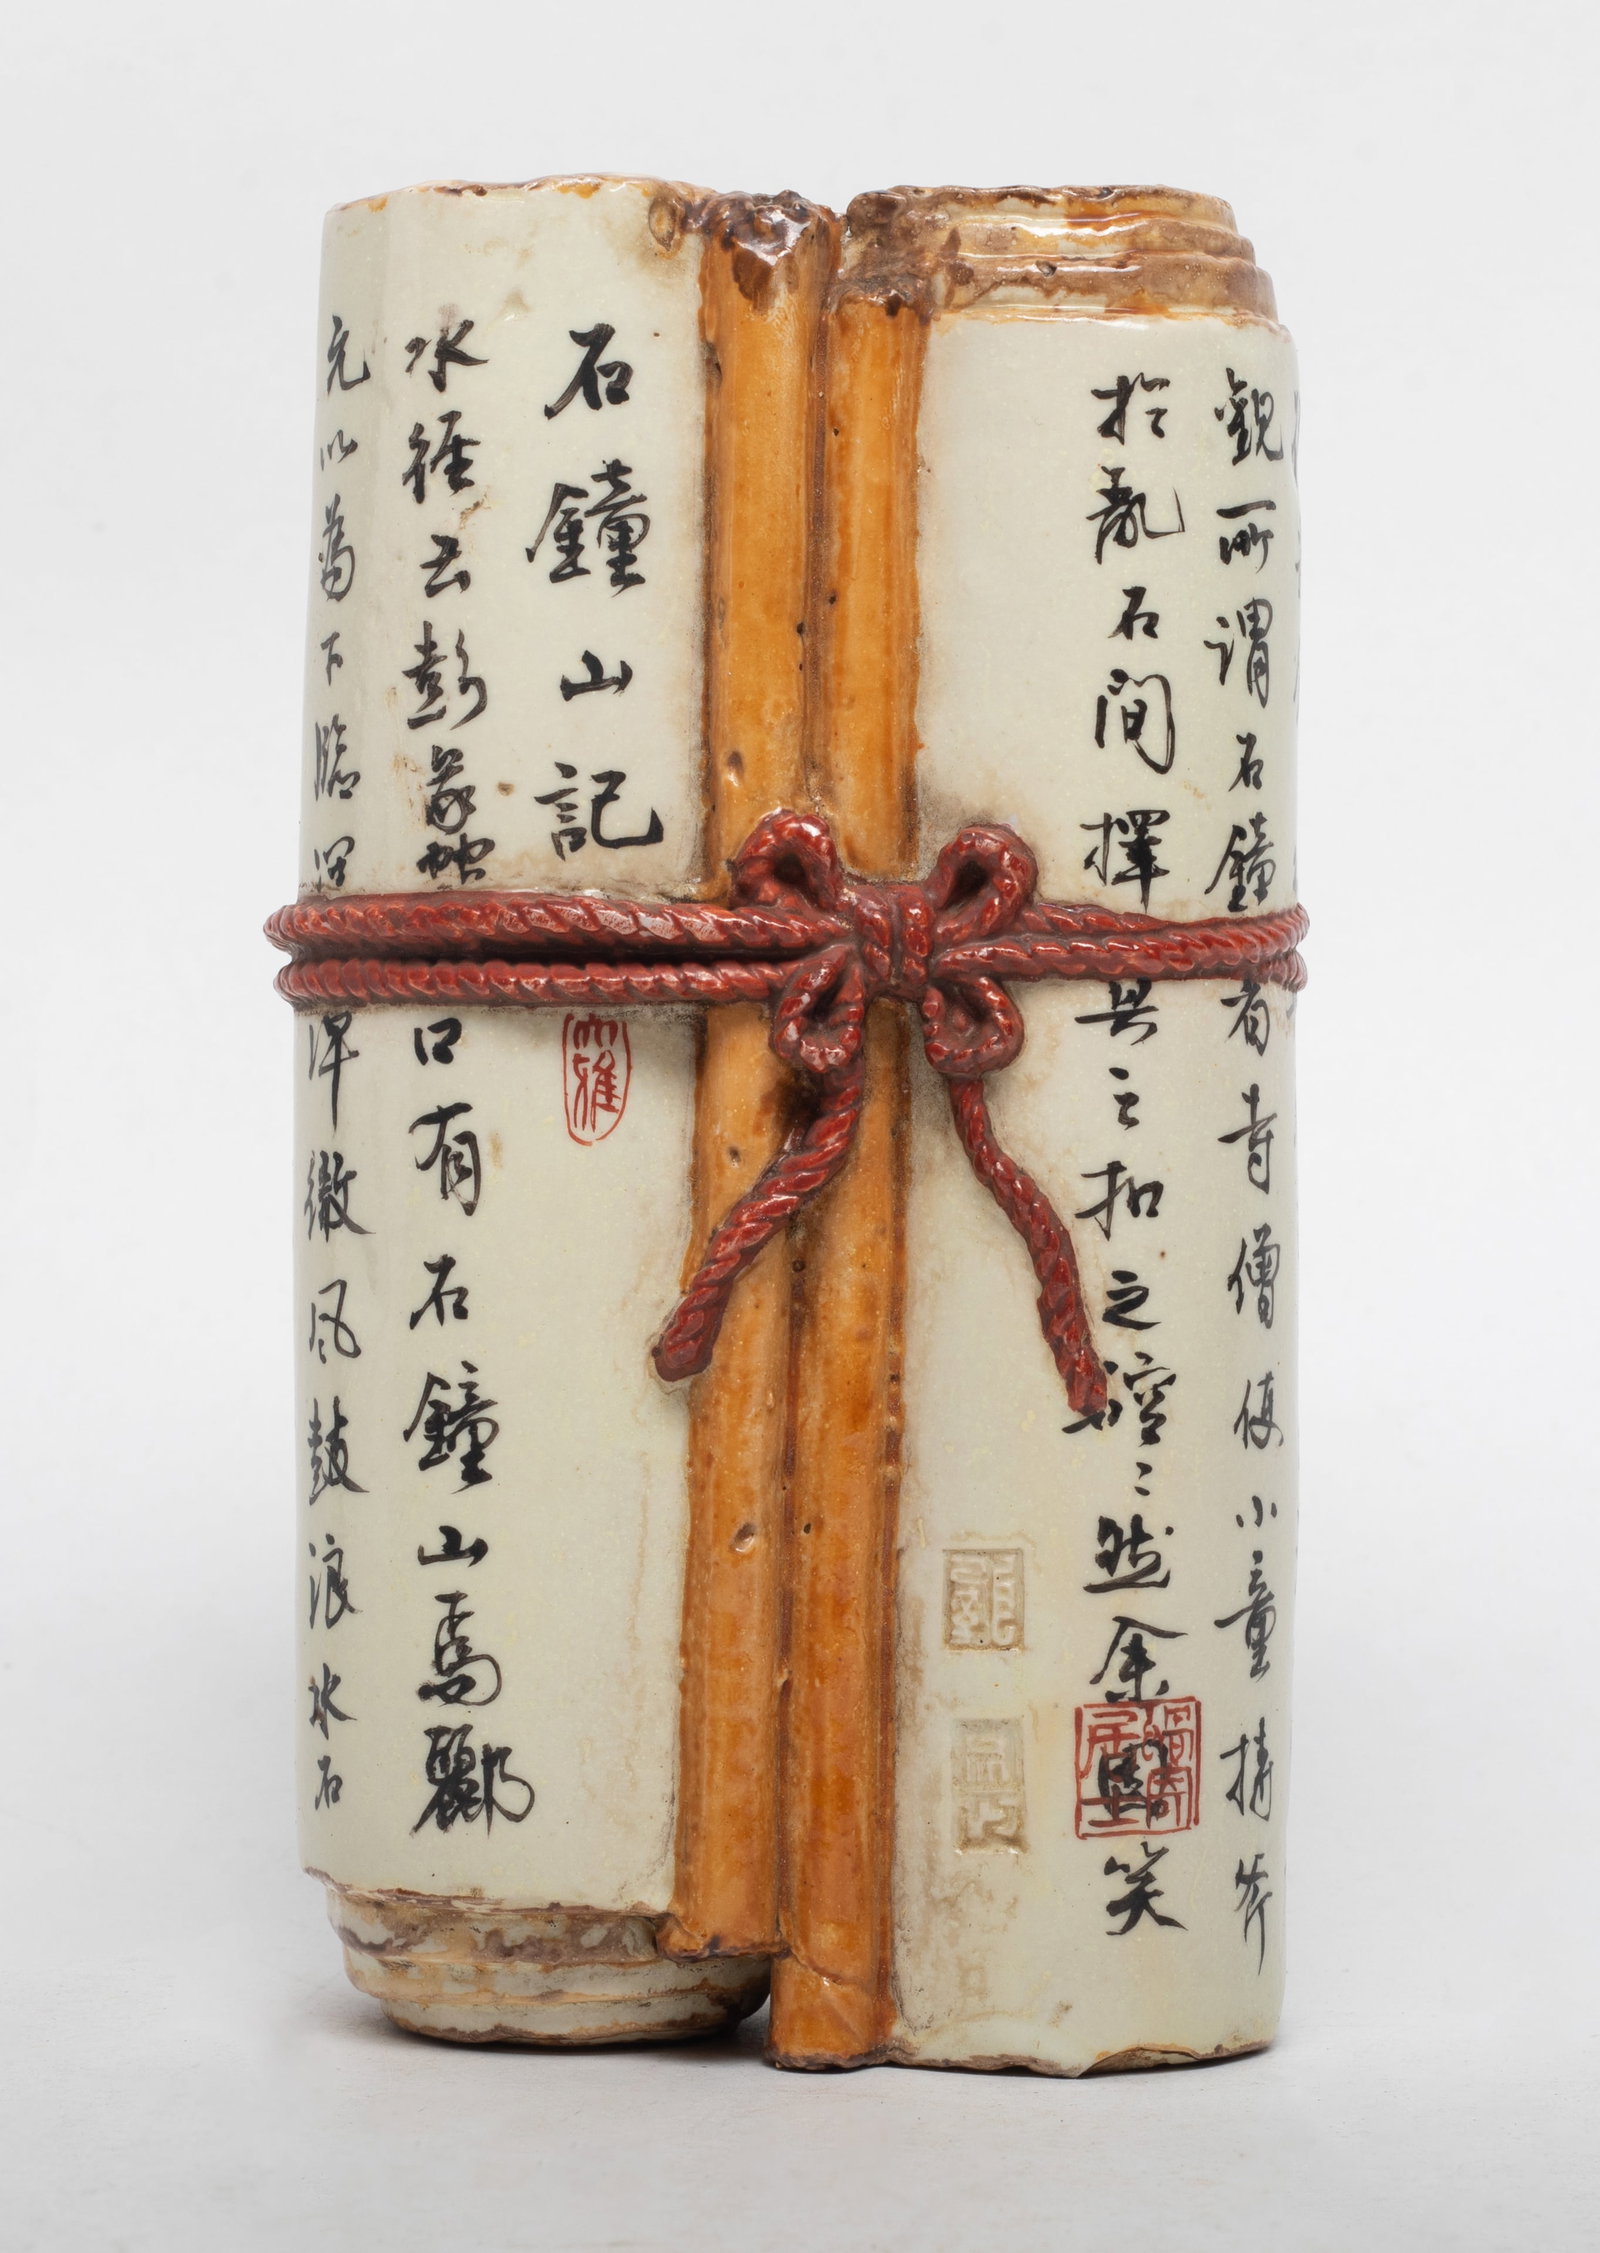 石鐘山記
水經云彭蠡口有石鐘山焉酈
元以為下臨深潭微風鼓浪水石
觀所謂石鐘者寺僧使小童持斧
於亂石間擇其一二扣之硿〻然余固笑